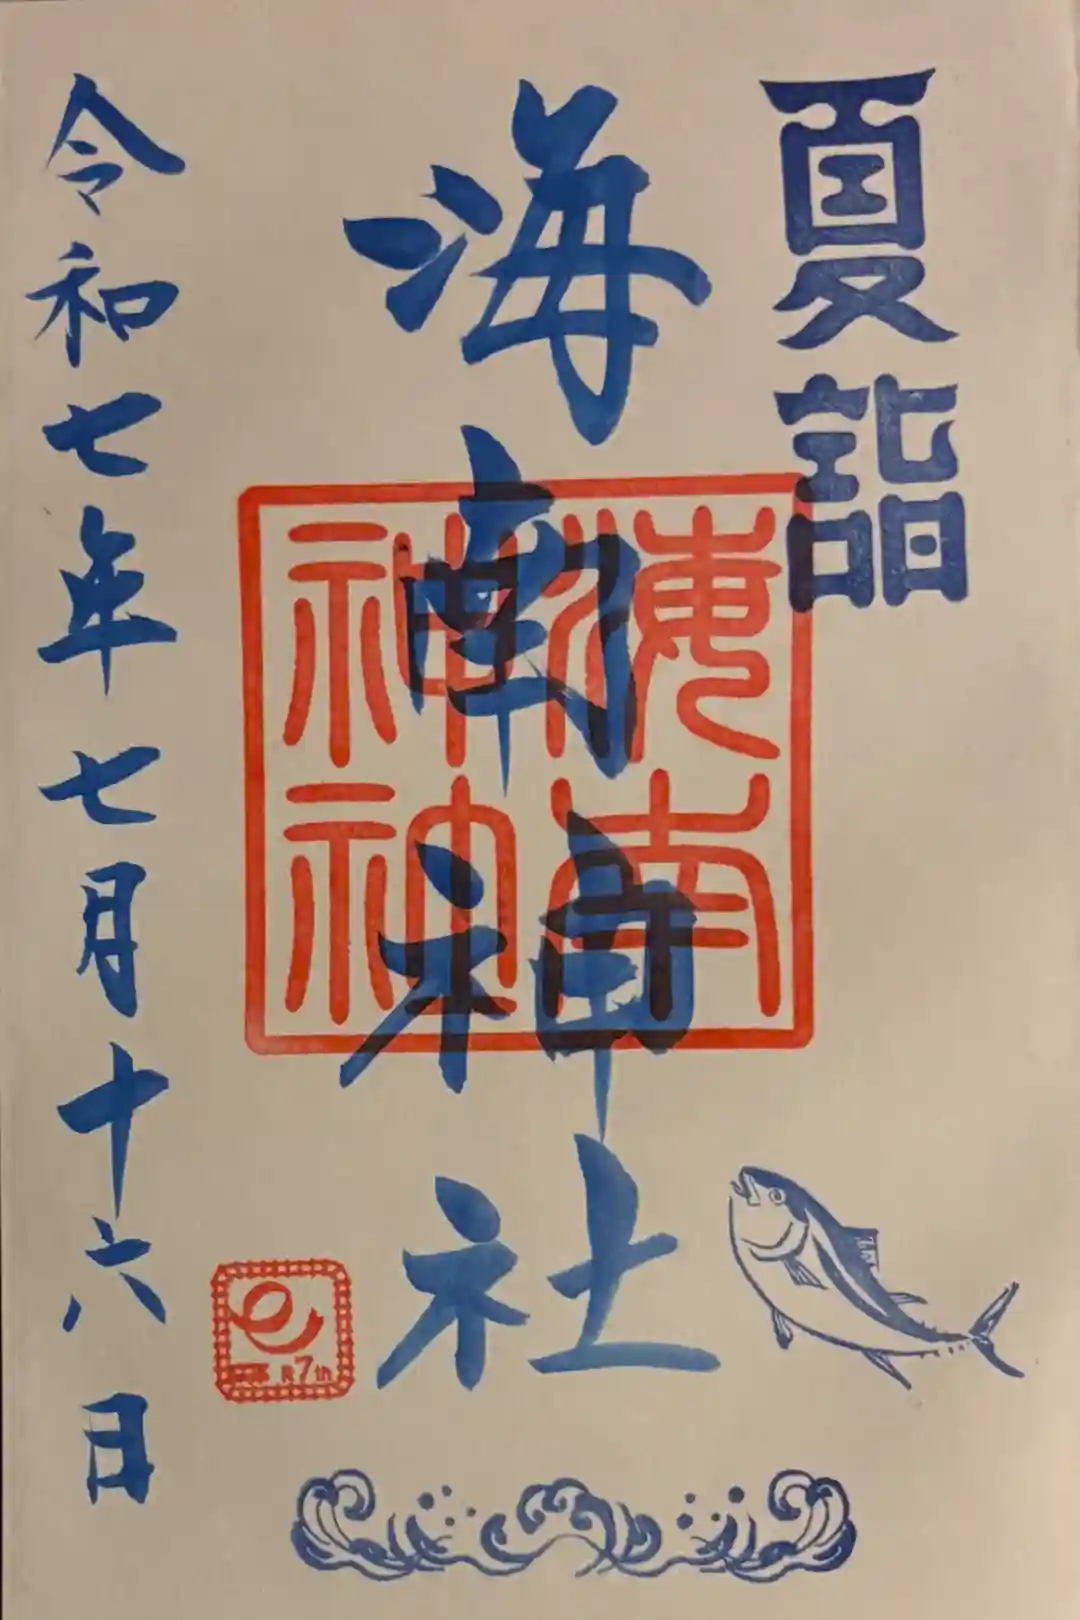 夏詣
海南神社
海南
神社
令和七年七月十六日
7th